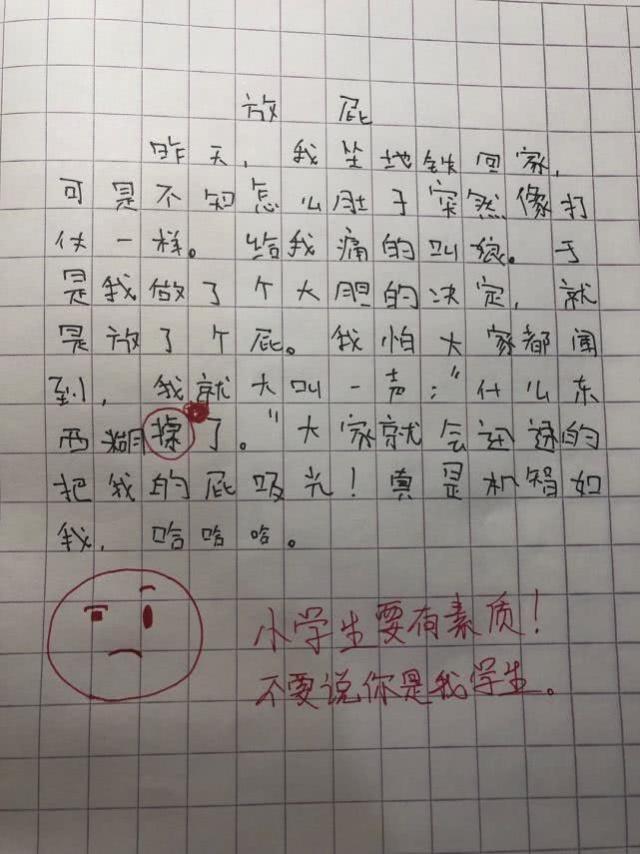 放屁
昨天，我坐地铁回家，
可是不知怎么肚子突然像打
仗一样。给我痛的叫娘。于
是我做了个大胆的决定，就
是放了个屁。我怕大家都闻
到，我就大叫一声：“什么东
西糊了。”大家就会迅速的
把我的屁吸光！真是机智如
我，哈哈哈。
小学生要有素质！
不要说你是我学生。